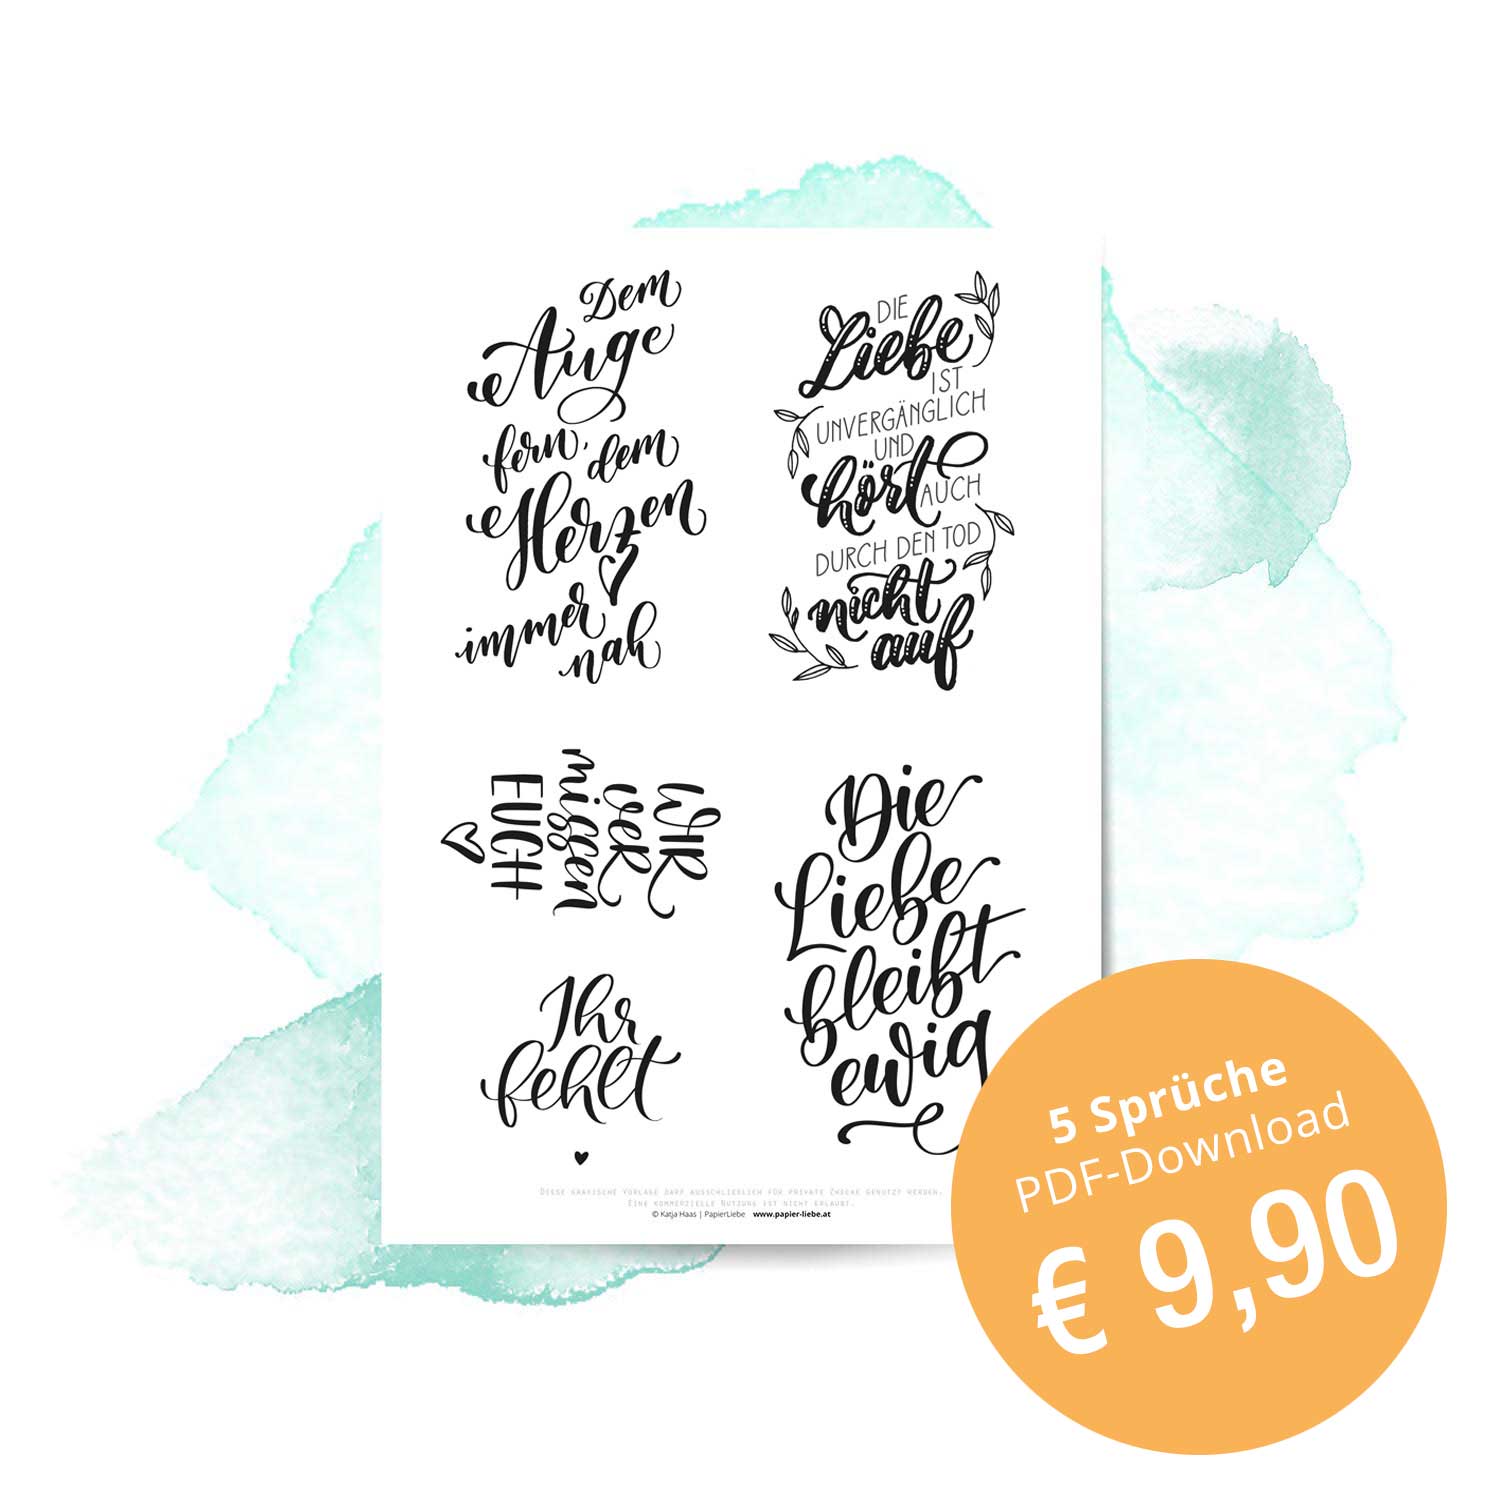 Dem
Auge
fern, dem
Herzen
immer
nah
DIE
Liebe
IST
UNVERGÄNGLICH
UND
hört
AUCH
DURCH DEN TOD
nicht
auf
WIR
VER
missen
EUCH
Ihr
fehlt
Die
Liebe
bleibt
ewig
Diese grafische Vorlage darf ausschließlich für private Zwecke genutzt werden.
Eine kommerzielle Nutzung ist nicht erlaubt.
© Katja Haas | PapierLiebe www.papier-liebe.at
5 Sprüche
PDF-Download
€ 9,90